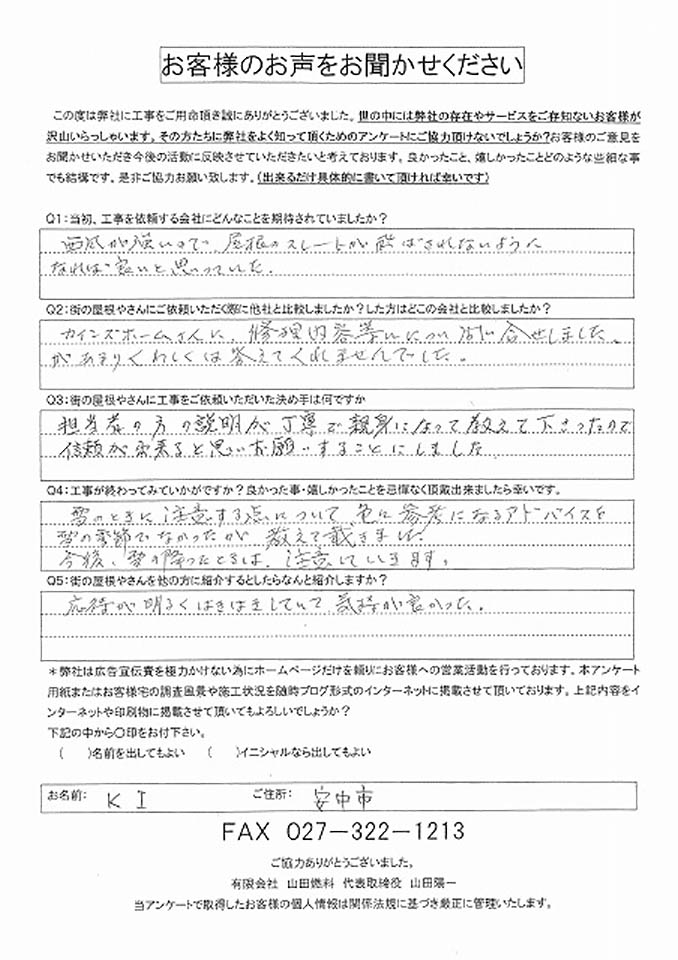 お客様のお声をお聞かせください
この度は弊社に工事をご用命頂き誠にありがとうございました。世の中には弊社の存在やサービスをご存知ないお客様が
沢山いらっしゃいます。その方たちに弊社をよく知って頂くためのアンケートにご協力頂けないでしょうか?お客様のご意見を
お聞かせいただき今後の活動に反映させていただきたいと考えております。良かったこと、嬉しかったことどのような些細な事
でも結構です。是非ご協力お願い致します。(出来るだけ具体的に書いて頂ければ幸いです)
Q1:当初、工事を依頼する会社にどんなことを期待されていましたか?
西風が強いので、屋根のスレートが飛ばされないように
なれば良いと思っていた.
Q2:街の屋根やさんにご依頼いただく際に他社と比較しましたか?した方はどこの会社と比較しましたか?
カインズホームさんに、修理内容等について問い合せしました、
があまりくわしくは答えてくれませんでした。
Q3:街の屋根やさんに工事をご依頼いただいた決め手は何ですか
担当者の方の説明が丁寧で親身になって教えて下さったので
信頼が出来ると思いお願いすることにしました.
Q4:工事が終わってみていかがですか?良かった事・嬉しかったことを忌憚なく頂戴出来ましたら幸いです。
雪のときに注意する点について、色々参考になるアドバイスを
雪の季節でなかったが、教えて戴きました.
今後、雪の降ったときは、注意していきます。
Q5:街の屋根やさんを他の方に紹介するとしたらなんと紹介しますか?
応待が明るくはきはきしていて、気持が良かった.
*弊社は広告宣伝費を極力かけない為にホームページだけを頼りにお客様への営業活動を行っております。本アンケート
用紙またはお客様宅の調査風景や施工状況を随時ブログ形式のインターネットに掲載させて頂いております。上記内容をイ
ンターネットや印刷物に掲載させて頂いてもよろしいでしょうか?
下記の中から〇印をお付下さい。
( )名前を出してもよい ( )イニシャルなら出してもよい
お名前: K I ご住所: 安中市
FAX 027-322-1213
ご協力ありがとうございました。
有限会社 山田燃料 代表取締役 山田陽一
当アンケートで取得したお客様の個人情報は関係法規に基づき厳正に管理いたします。